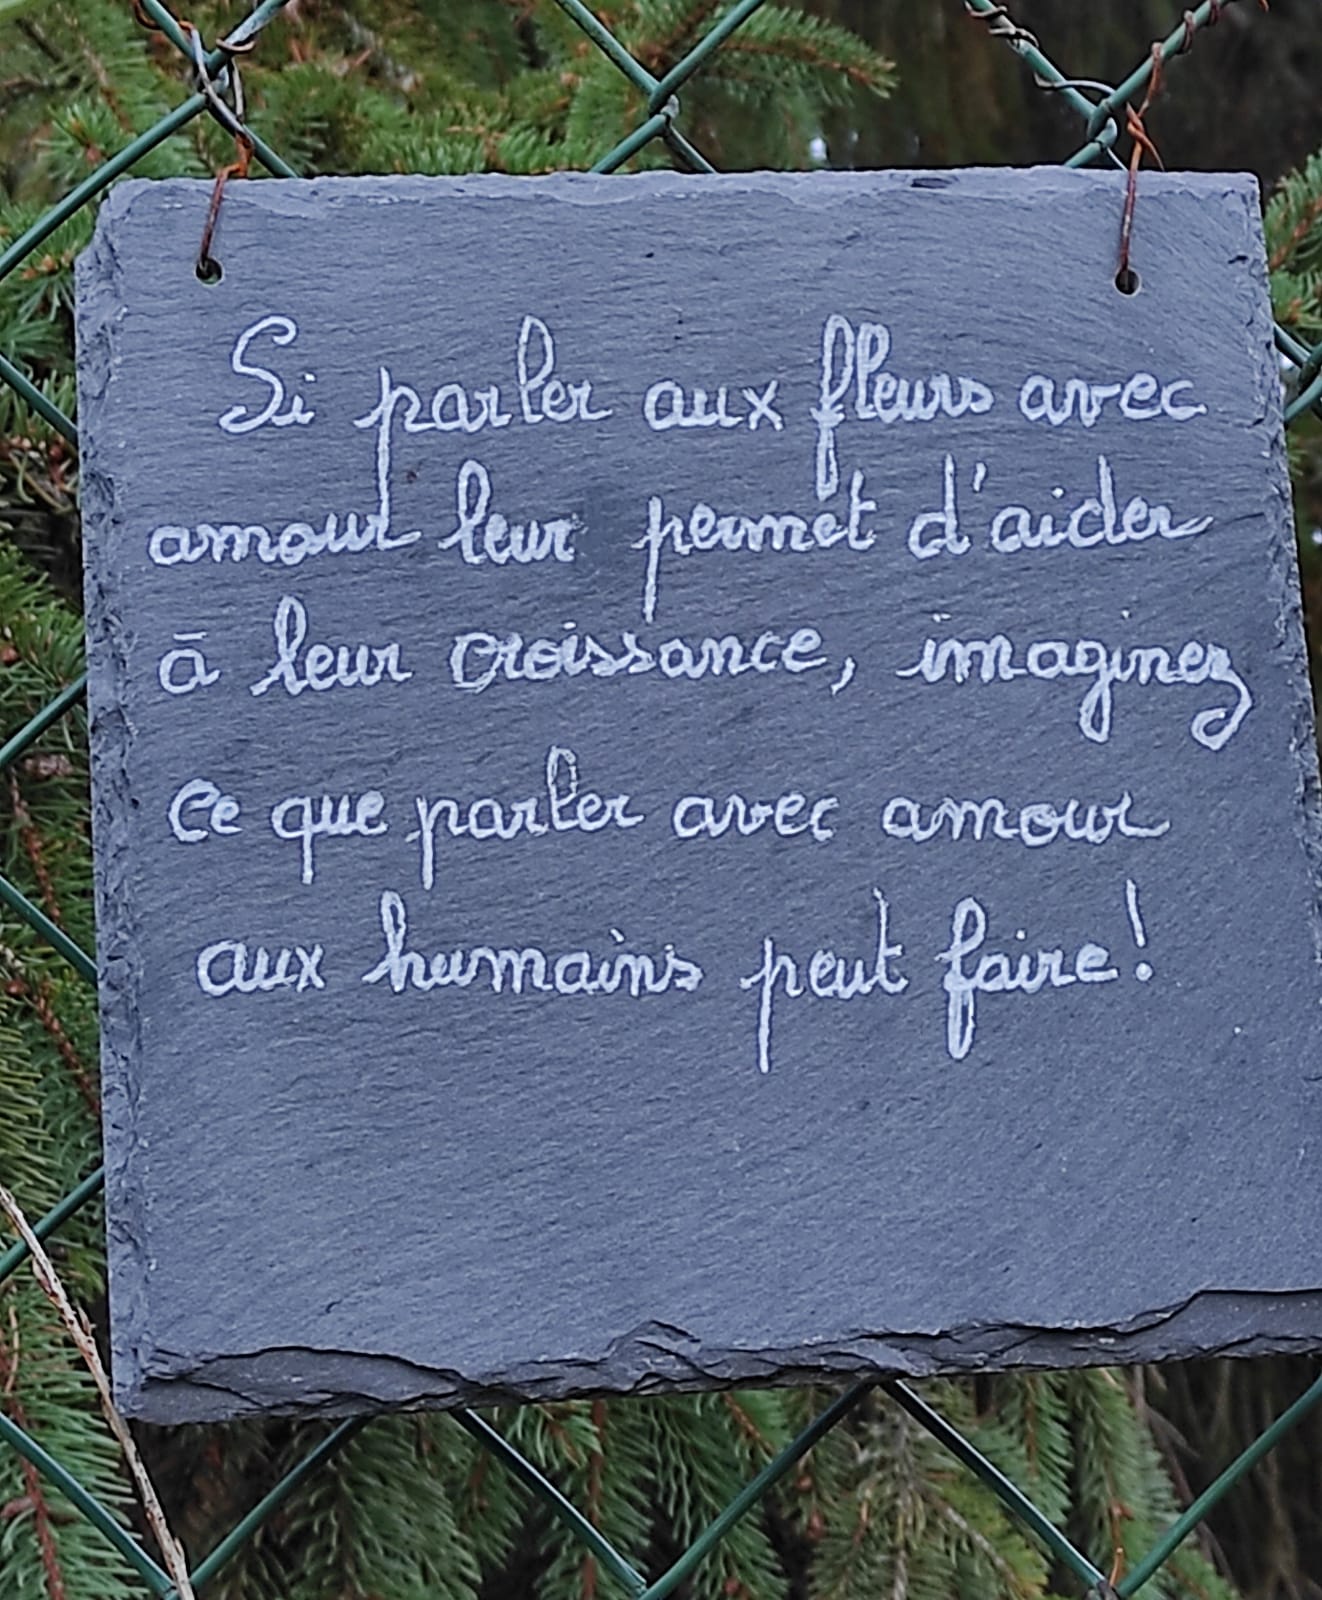 Si parler aux fleurs avec
amour leur permet d'aider
à leur croissance, imaginez
ce que parler avec amour
aux humains peut faire!